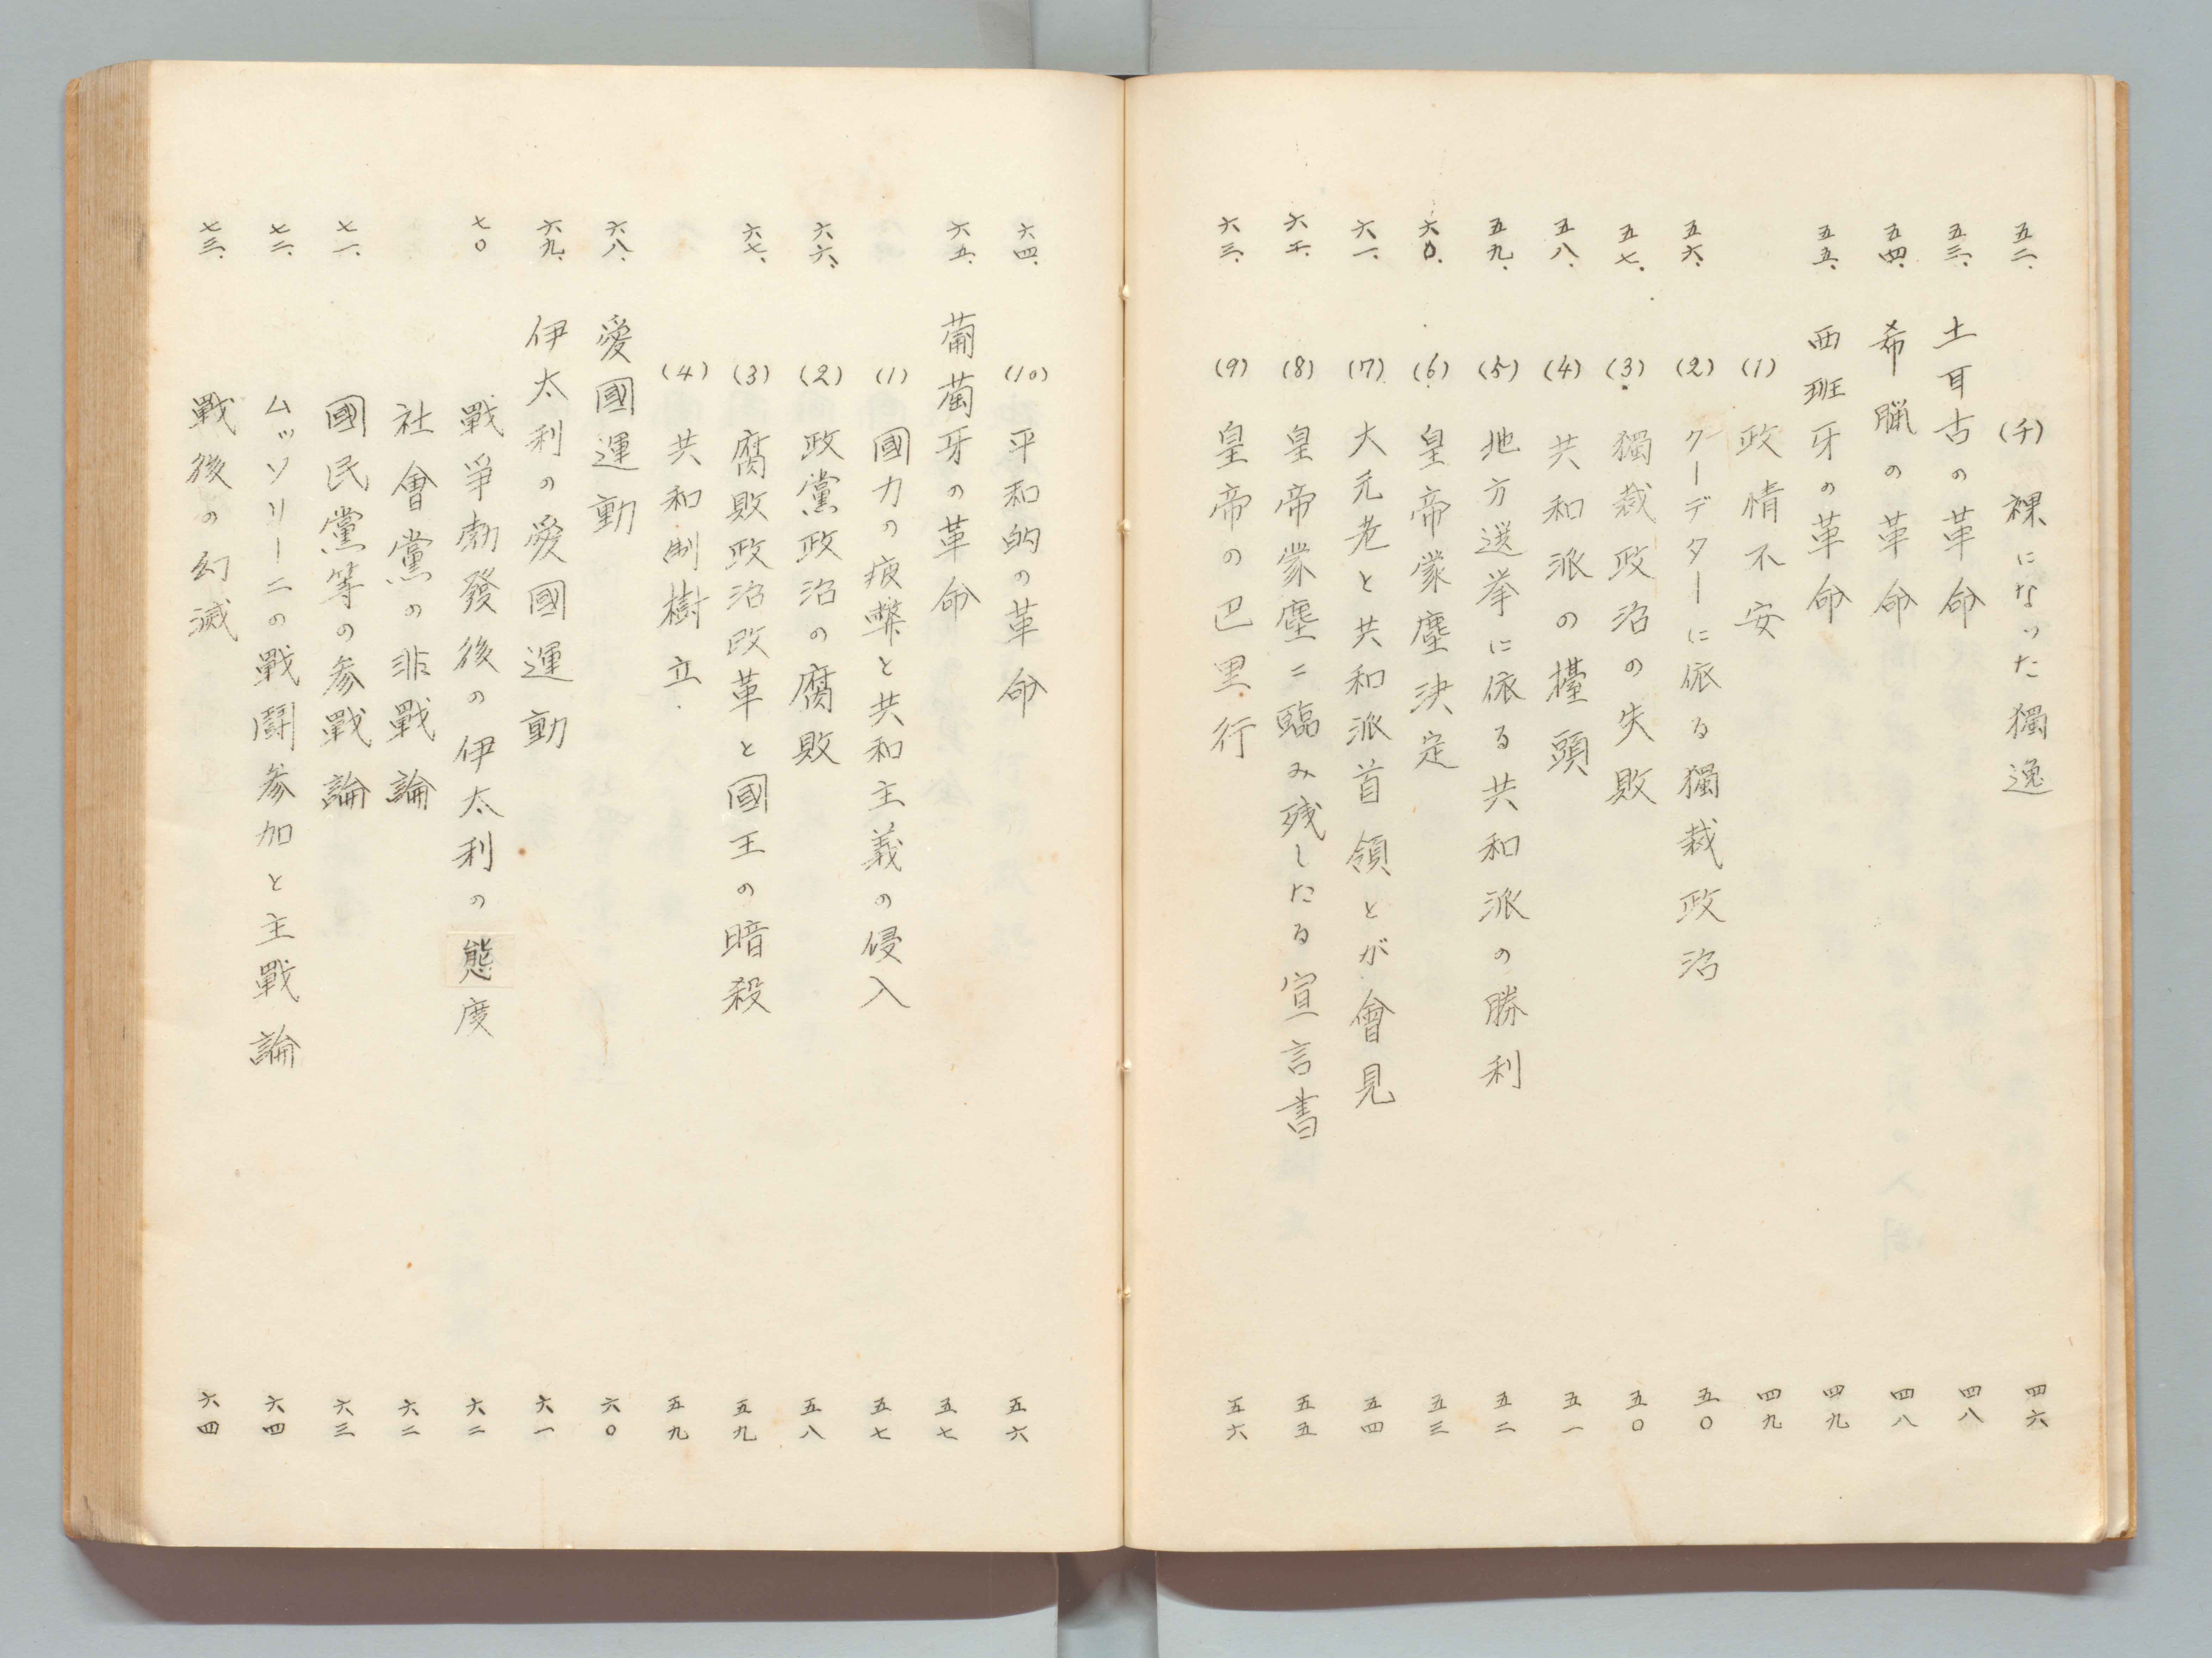 五二、 (チ) 裸になった獨逸 四六
五三、 土耳古の革命 四八
五四、 希臘の革命 四八
五五、 西班牙の革命 四九
(1) 政情不安 四九
五六、 (2) クーデターに依る獨裁政治 五〇
五七、 (3) 獨裁政治の失敗 五〇
五八、 (4) 共和派の擡頭 五一
五九、 (5) 地方選挙に依る共和派の勝利 五二
六〇、 (6) 皇帝蒙塵決定 五三
六一、 (7) 大元老と共和派首領とが會見 五四
六二、 (8) 皇帝蒙塵ニ臨み残したる宣言書 五五
六三、 (9) 皇帝の巴里行 五六
六四、 (10) 平和的の革命 五六
六五、 葡萄牙の革命 五七
(1) 國力の疲弊と共和主義の侵入 五七
六六、 (2) 政黨政治の腐敗 五八
六七、 (3) 腐敗政治改革と國王の暗殺 五九
(4) 共和制樹立 五九
六八、 愛國運動 六〇
六九、 伊太利の愛國運動 六一
七〇 戰爭勃發後の伊太利の態度 六二
社會黨の非戰論 六二
七一、 國民黨等の参戰論 六三
七二、 ムッソリーニの戰鬪参加と主戰論 六四
七三、 戰後の幻滅 六四